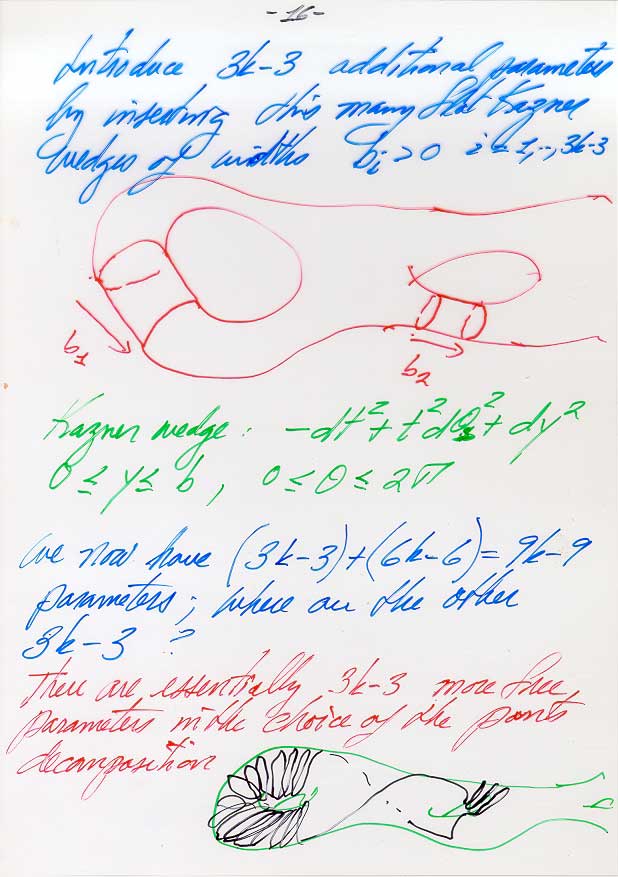 -16-
Introduce 3k-3 additional parameters
by inserting this many flat Kazner
wedges of widths b_i > 0 i = 1, --, 3k-3
b_1
b_2
Kazner wedge : -dt^2 + t^2 dθ^2 + dy^2
0 ≤ y ≤ b , 0 ≤ θ ≤ 2π
We now have (3k-3)+(6k-6) = 9k-9
parameters ; where are the other
3k-3 ?
There are essentially 3k-3 more free
parameters in the choice of the pants
decomposition